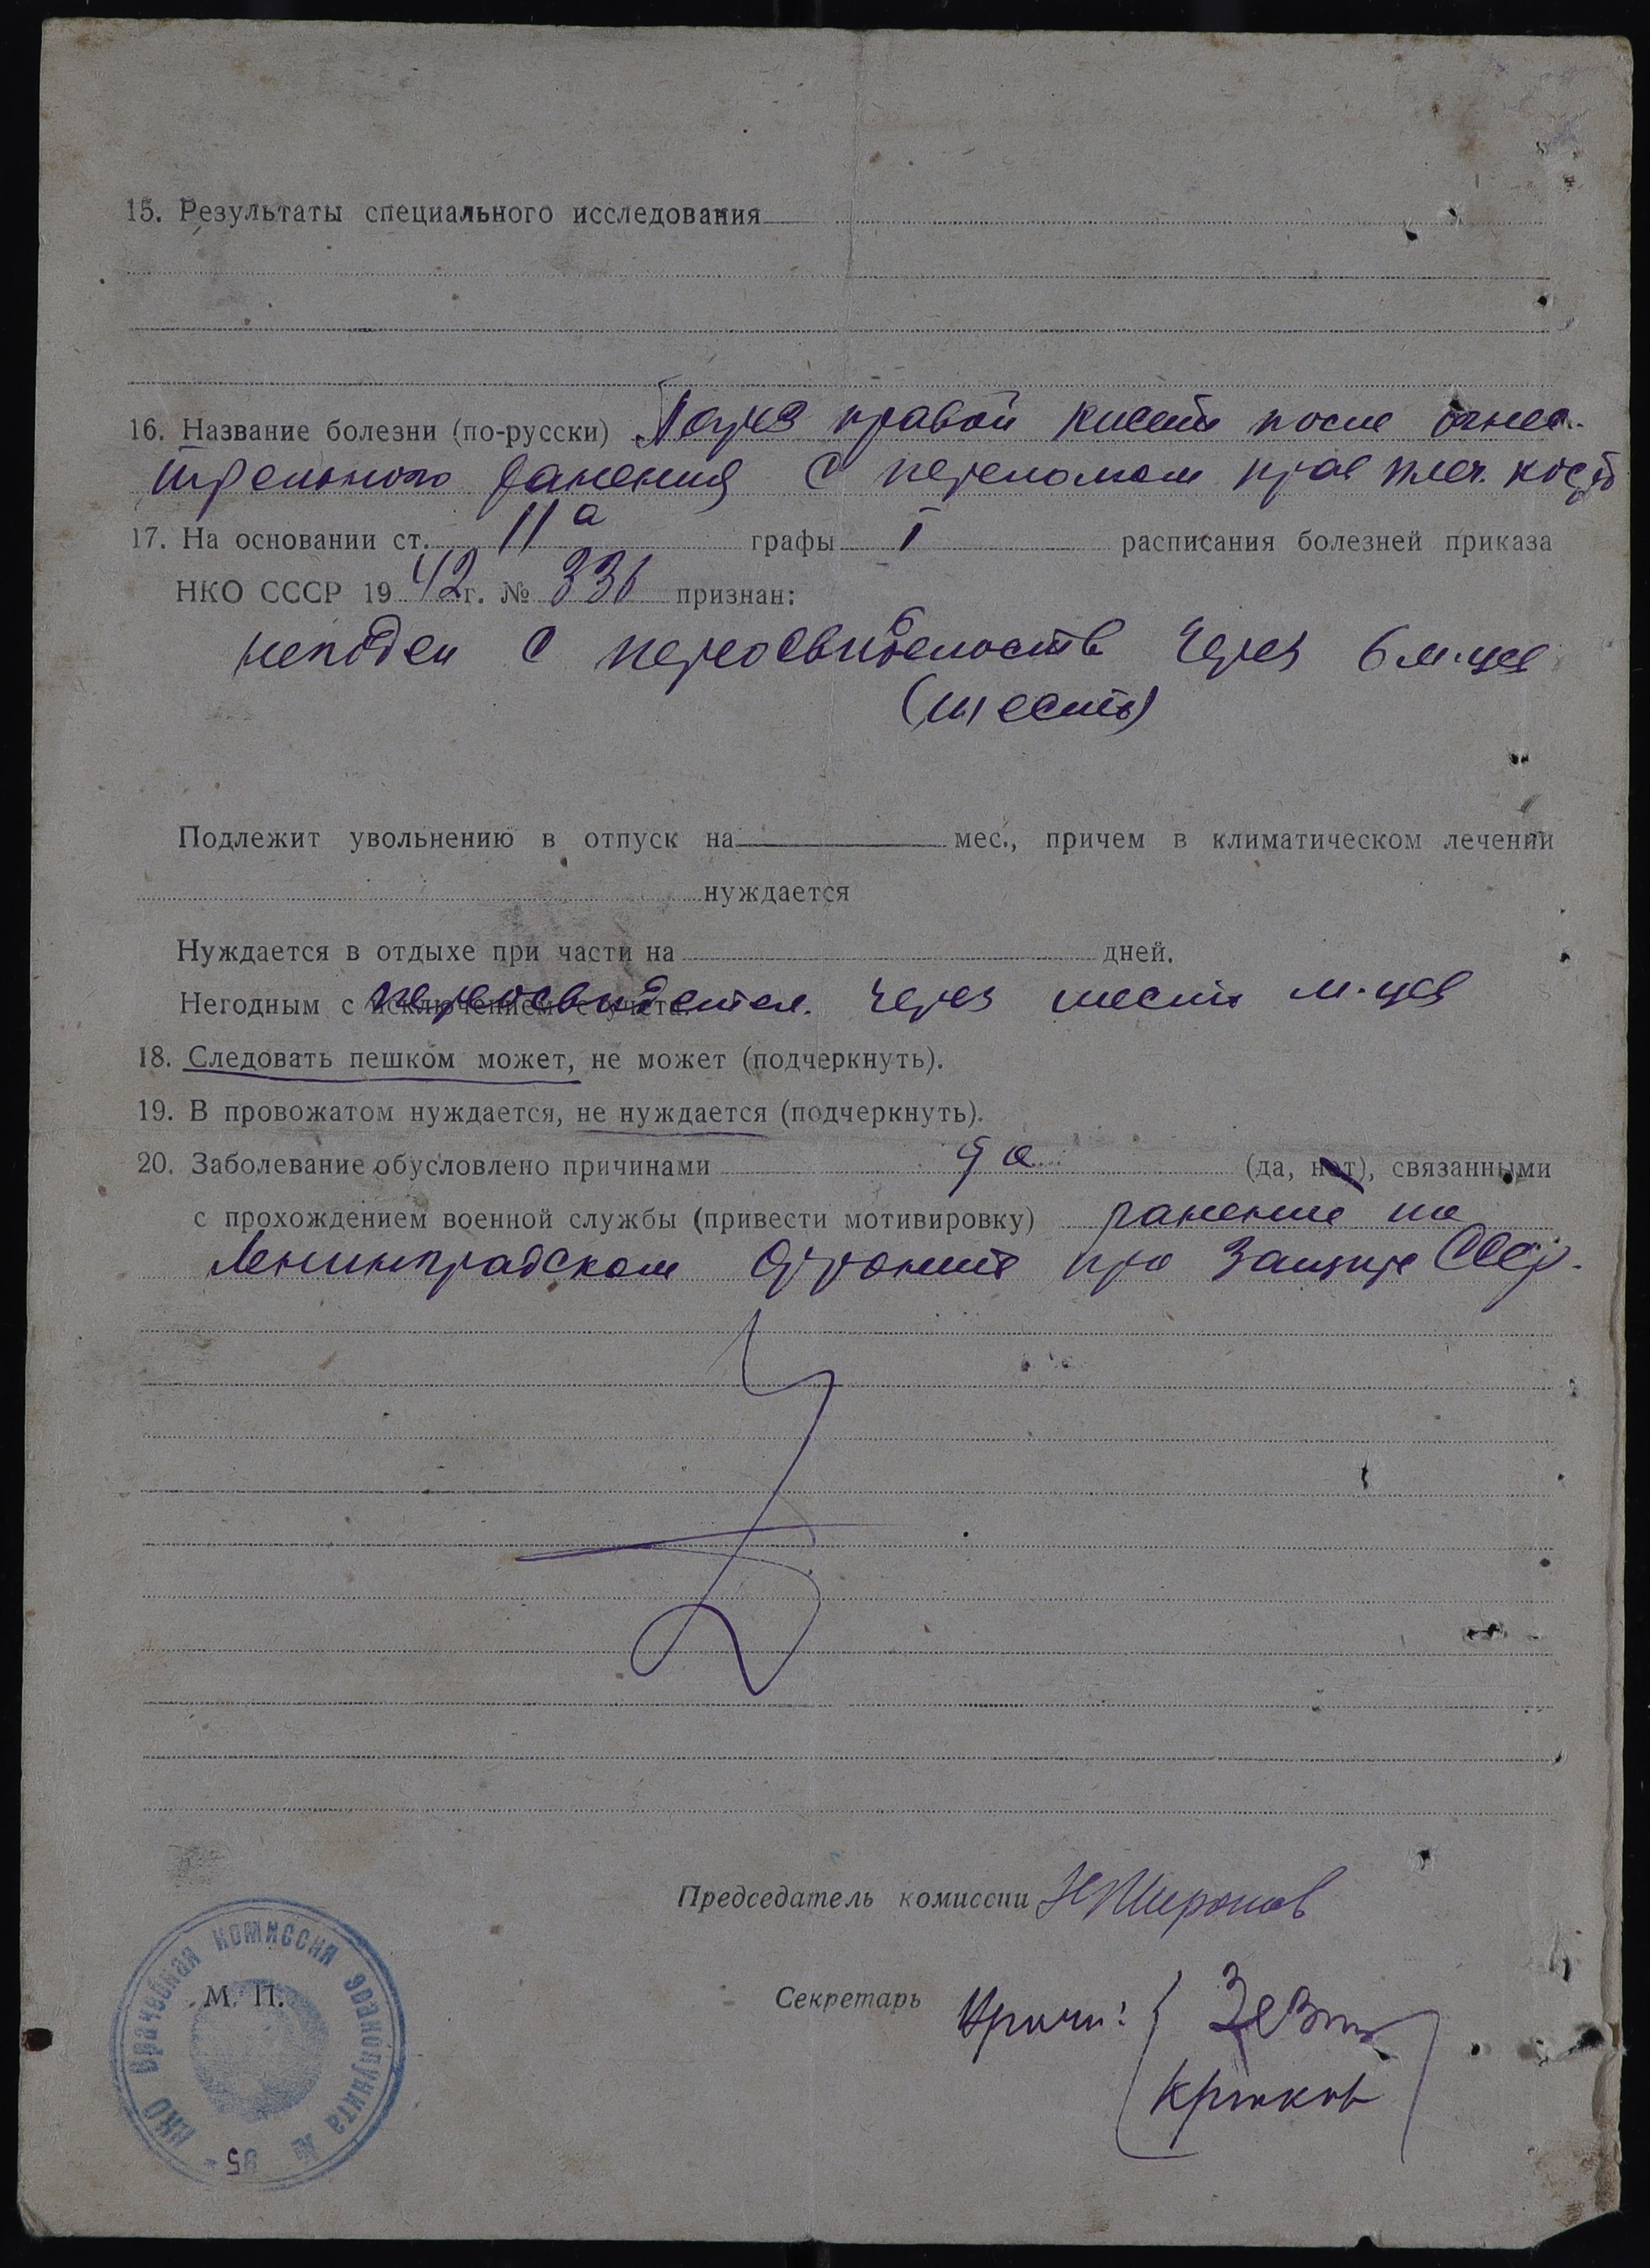 15. Результаты специального исследования
16. Название болезни (по-русски) Парез правой кисти после огнес-
трельного ранения с переломом прав плеч. кости
17. На основании ст. 11а графы I расписания болезней приказа
НКО СССР 1942 г. № 336 признан:
негоден с переосвидетельств через 6 м-цев
(шесть)
Подлежит увольнению в отпуск на мес., причем в климатическом лечении
нуждается
Нуждается в отдыхе при части на дней.
Негодным с исключением с учета. переосвидетел. через шесть м-цев
18. Следовать пешком может, не может (подчеркнуть).
19. В провожатом нуждается, не нуждается (подчеркнуть).
20. Заболевание обусловлено причинами да (да, нет), связанными
с прохождением военной службы (привести мотивировку) ранение на
Ленинградском фронте при защите СССР.
Председатель комиссии Миронов
М. П.
Секретарь Врачи:
Крюков
НКО Врачебная комиссия эвакопункта № 95